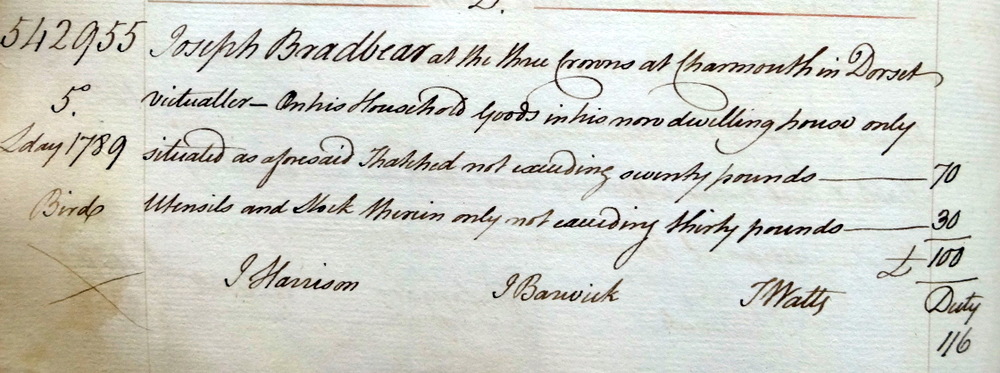 D.
542955
Joseph Bradbear at the three Crowns at Charmouth in Dorset
5.
victualler – On his Household Goods in his now dwelling house only
Lday 1789
situated as aforesaid Thatched not exceeding seventy pounds — 70
Bird
Utensils and Stock therein only not exceeding thirty pounds — 30
£ 100
J Harrison J Barwick J Watts
Duty
1/6